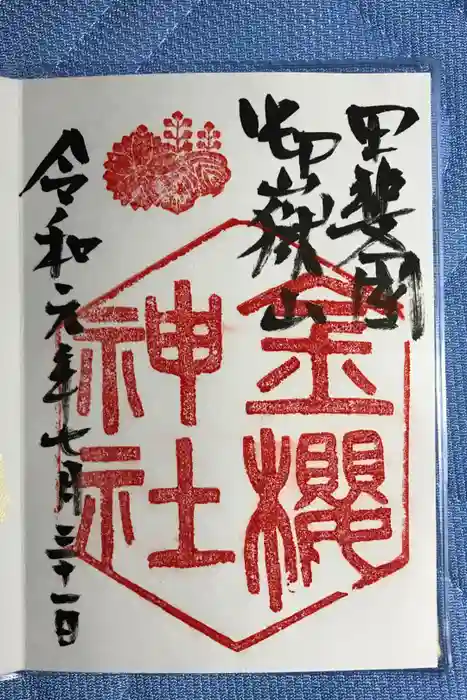 甲斐国
御嶽山
金櫻
神社
令和元年七月三十一日